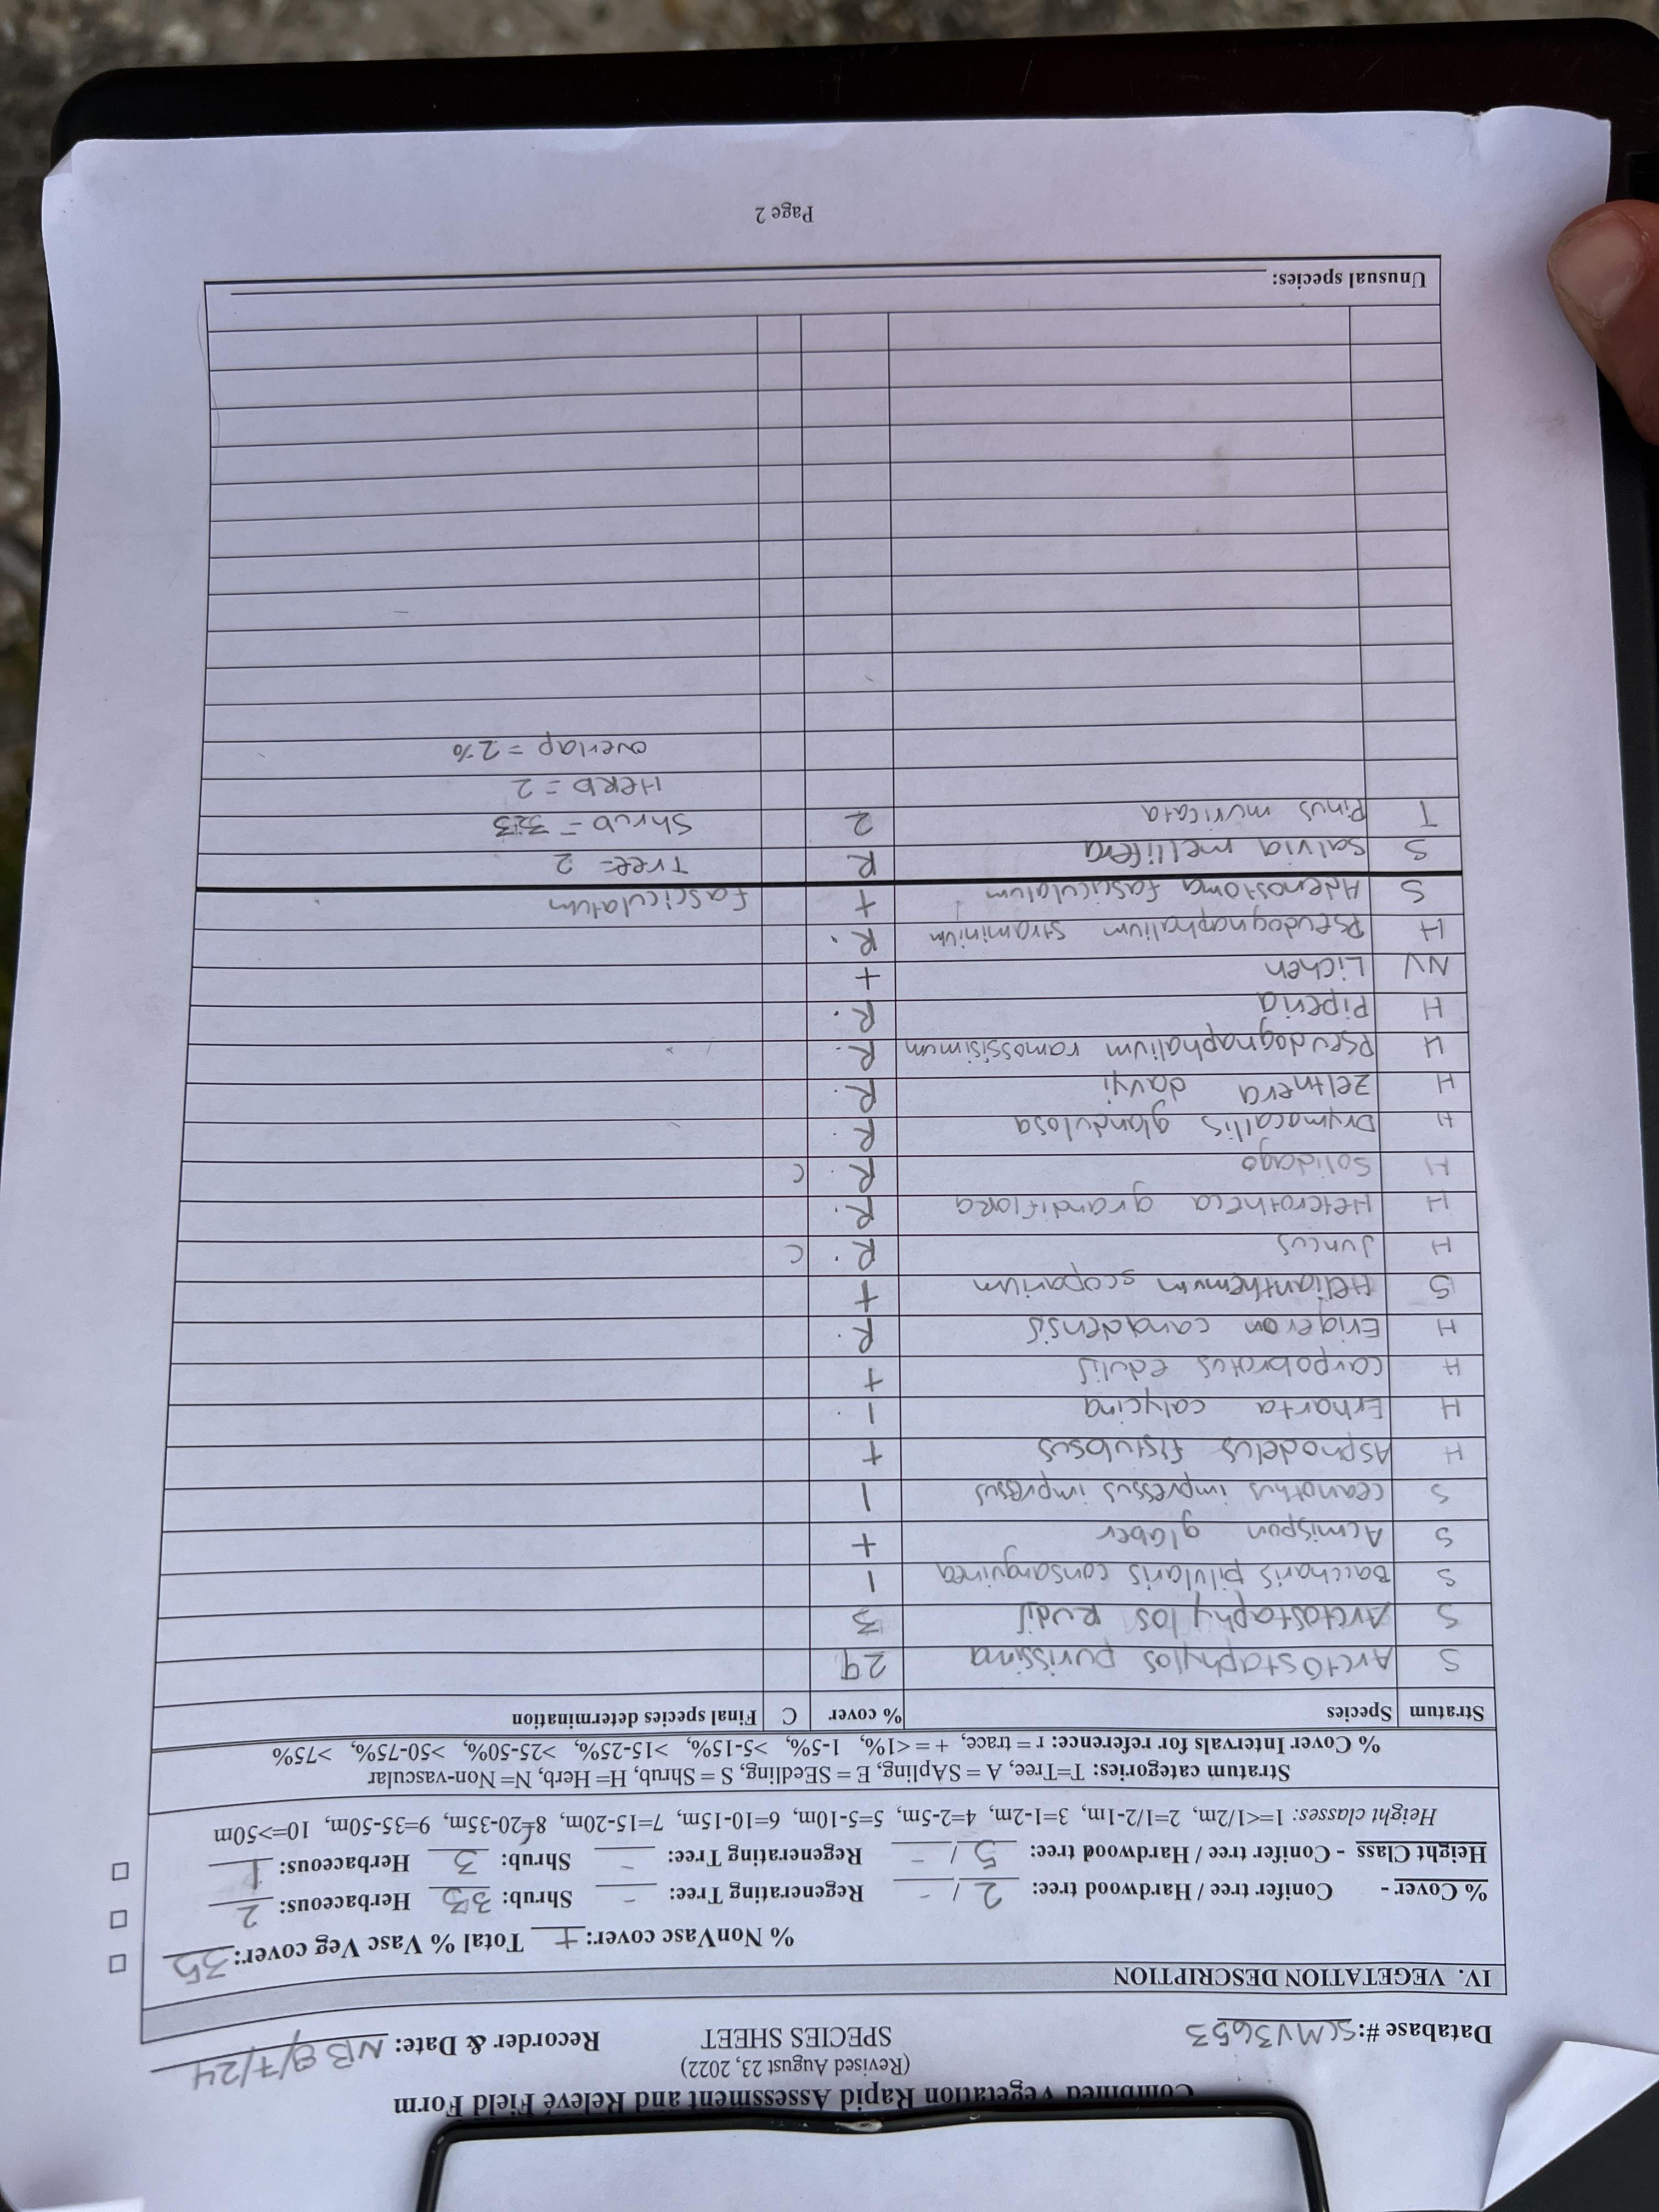 Combined Vegetation Rapid Assessment and Relevé Field Form
(Revised August 23, 2022)
Database #: SCMV3653 SPECIES SHEET Recorder & Date: NB 8/7/24
IV. VEGETATION DESCRIPTION
% NonVasc cover: + Total % Vasc Veg cover: 35
% Cover - Conifer tree / Hardwood tree: 2 / - Regenerating Tree: - Shrub: 33 Herbaceous: 2
Height Class - Conifer tree / Hardwood tree: 5 / - Regenerating Tree: - Shrub: 3 Herbaceous: 1
Height classes: 1=<1/2m, 2=1/2-1m, 3=1-2m, 4=2-5m, 5=5-10m, 6=10-15m, 7=15-20m, 8=20-35m, 9=35-50m, 10=>50m
Stratum categories: T=Tree, A = SApling, E = SEedling, S = Shrub, H= Herb, N= Non-vascular
% Cover Intervals for reference: r = trace, + = <1%, 1-5%, >5-15%, >15-25%, >25-50%, >50-75%, >75%
Stratum Species % cover C Final species determination
S Arctostaphylos purissima 29
S Arctostaphylos Rudis 3
S Baccharis pilularis consanguinea 1
S Acmispon glaber +
S Ceanothus impressus impressus 1
H Asphodelus fistulosus +
H Erharta calycina 1
H Carpobrotus edulis +
H Erigeron canadensis R
S Helianthemum scoparium +
H Juncus R C
H Heterotheca grandiflora R
H Solidago R C
H Drymocallis glandulosa R
H Zeltnera davyi R
H Pseudognaphalium ramossisimum R
H Piperia R
NV Lichen +
H Pseudognaphalium straminium R
S Adenostoma fasciculatum + fasciculatum
S Salvia mellifera R Tree = 2
T Pinus muricata 2 Shrub = 33
Herb = 2
overlap = 2%
Unusual species:
Page 2